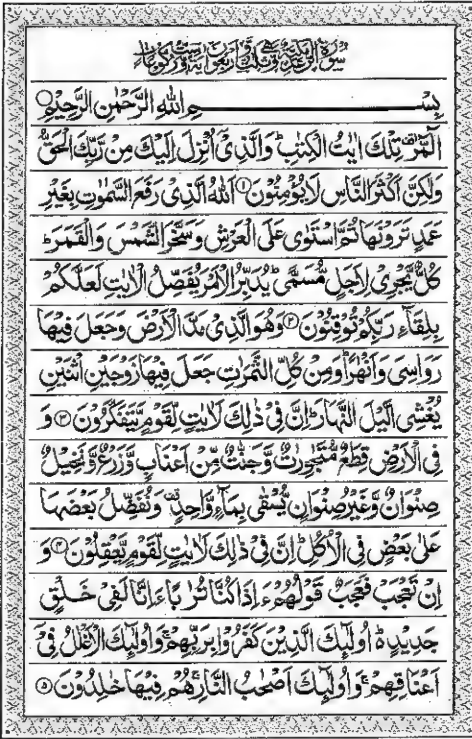 سُوۡرَةُ الرَّعۡدِ مَدَنِيَّةٌ وَّهِيَ ثَلٰثٌ وَّاَرۡبَعُوۡنَ اٰيَةً وَّسِتُّ رُكُوۡعَاتٍ
بِسۡمِ اللّٰهِ الرَّحۡمٰنِ الرَّحِيۡمِ
الٓمّٓرٰ ۚ تِلۡكَ اٰيٰتُ الۡكِتٰبِ ؕ وَالَّذِيۡۤ اُنۡزِلَ اِلَيۡكَ مِنۡ رَّبِّكَ الۡحَقُّ
وَلٰكِنَّ اَكۡثَرَ النَّاسِ لَا يُؤۡمِنُوۡنَ ۝۱ اَللّٰهُ الَّذِيۡ رَفَعَ السَّمٰوٰتِ بِغَيۡرِ
عَمَدٍ تَرَوۡنَهَا ثُمَّ اسۡتَوٰى عَلَى الۡعَرۡشِ وَسَخَّرَ الشَّمۡسَ وَالۡقَمَرَ ؕ
كُلٌّ يَّجۡرِيۡ لِاَجَلٍ مُّسَمًّى ؕ يُدَبِّرُ الۡاَمۡرَ يُفَصِّلُ الۡاٰيٰتِ لَعَلَّكُمۡ
بِلِقَآءِ رَبِّكُمۡ تُوۡقِنُوۡنَ ۝۲ وَهُوَ الَّذِيۡ مَدَّ الۡاَرۡضَ وَجَعَلَ فِيۡهَا
رَوَاسِيَ وَاَنۡهٰرًا ؕ وَمِنۡ كُلِّ الثَّمَرٰتِ جَعَلَ فِيۡهَا زَوۡجَيۡنِ اثۡنَيۡنِ
يُغۡشِي الَّيۡلَ النَّهَارَ ؕ اِنَّ فِيۡ ذٰلِكَ لَاٰيٰتٍ لِّقَوۡمٍ يَّتَفَكَّرُوۡنَ ۝۳ وَ
فِي الۡاَرۡضِ قِطَعٌ مُّتَجٰوِرٰتٌ وَّجَنّٰتٌ مِّنۡ اَعۡنَابٍ وَّزَرۡعٌ وَّنَخِيۡلٌ
صِنۡوَانٌ وَّغَيۡرُ صِنۡوَانٍ يُّسۡقٰى بِمَآءٍ وَّاحِدٍ ۟ وَنُفَضِّلُ بَعۡضَهَا
عَلٰى بَعۡضٍ فِي الۡاُكُلِ ؕ اِنَّ فِيۡ ذٰلِكَ لَاٰيٰتٍ لِّقَوۡمٍ يَّعۡقِلُوۡنَ ۝۴ وَ
اِنۡ تَعۡجَبۡ فَعَجَبٌ قَوۡلُهُمۡ ءَاِذَا كُنَّا تُرٰبًا ءَاِنَّا لَفِيۡ خَلۡقٍ
جَدِيۡدٍ ؕ اُولٰٓئِكَ الَّذِيۡنَ كَفَرُوۡا بِرَبِّهِمۡ ۚ وَاُولٰٓئِكَ الۡاَغۡلٰلُ فِيۡۤ
اَعۡنَاقِهِمۡ ۚ وَاُولٰٓئِكَ اَصۡحٰبُ النَّارِ ۚ هُمۡ فِيۡهَا خٰلِدُوۡنَ ۝۵